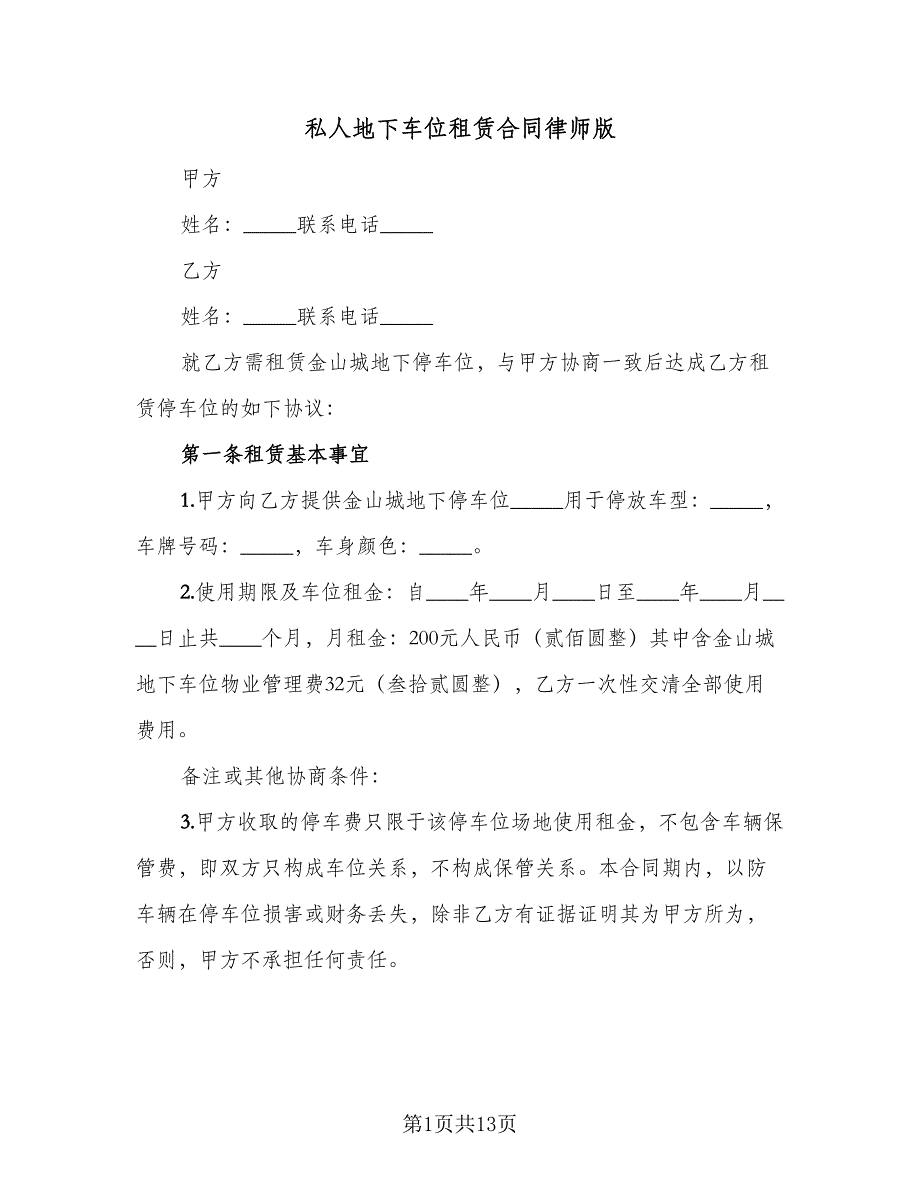 私人地下车位租赁合同律师版
甲方
姓名：_____联系电话_____
乙方
姓名：_____联系电话_____
就乙方需租赁金山城地下停车位，与甲方协商一致后达成乙方租
赁停车位的如下协议：
第一条租赁基本事宜
1.甲方向乙方提供金山城地下停车位_____用于停放车型：_____，
车牌号码：_____，车身颜色：_____。
2.使用期限及车位租金：自____年____月____日至____年____月__
__日止共____个月，月租金：200元人民币（贰佰圆整）其中含金山城
地下车位物业管理费32元（叁拾贰圆整），乙方一次性交清全部使用
费用。
备注或其他协商条件：
3.甲方收取的停车费只限于该停车位场地使用租金，不包含车辆保
管费，即双方只构成车位关系，不构成保管关系。本合同期内，以防
车辆在停车位损害或财务丢失，除非乙方有证据证明其为甲方所为，
否则，甲方不承担任何责任。
第1页共13页